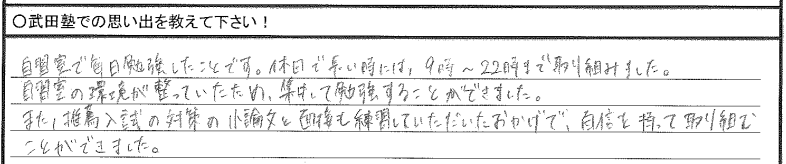 ○武田塾での思い出を教えて下さい！
自習室で毎日勉強したことです。休日で長い時には、9時～22時まで取り組みました。
自習室の環境が整っていたため、集中して勉強することができました。
また、推薦入試の対策の小論文と面接も練習していただいたおかげで、自信を持って取り組む
ことができました。